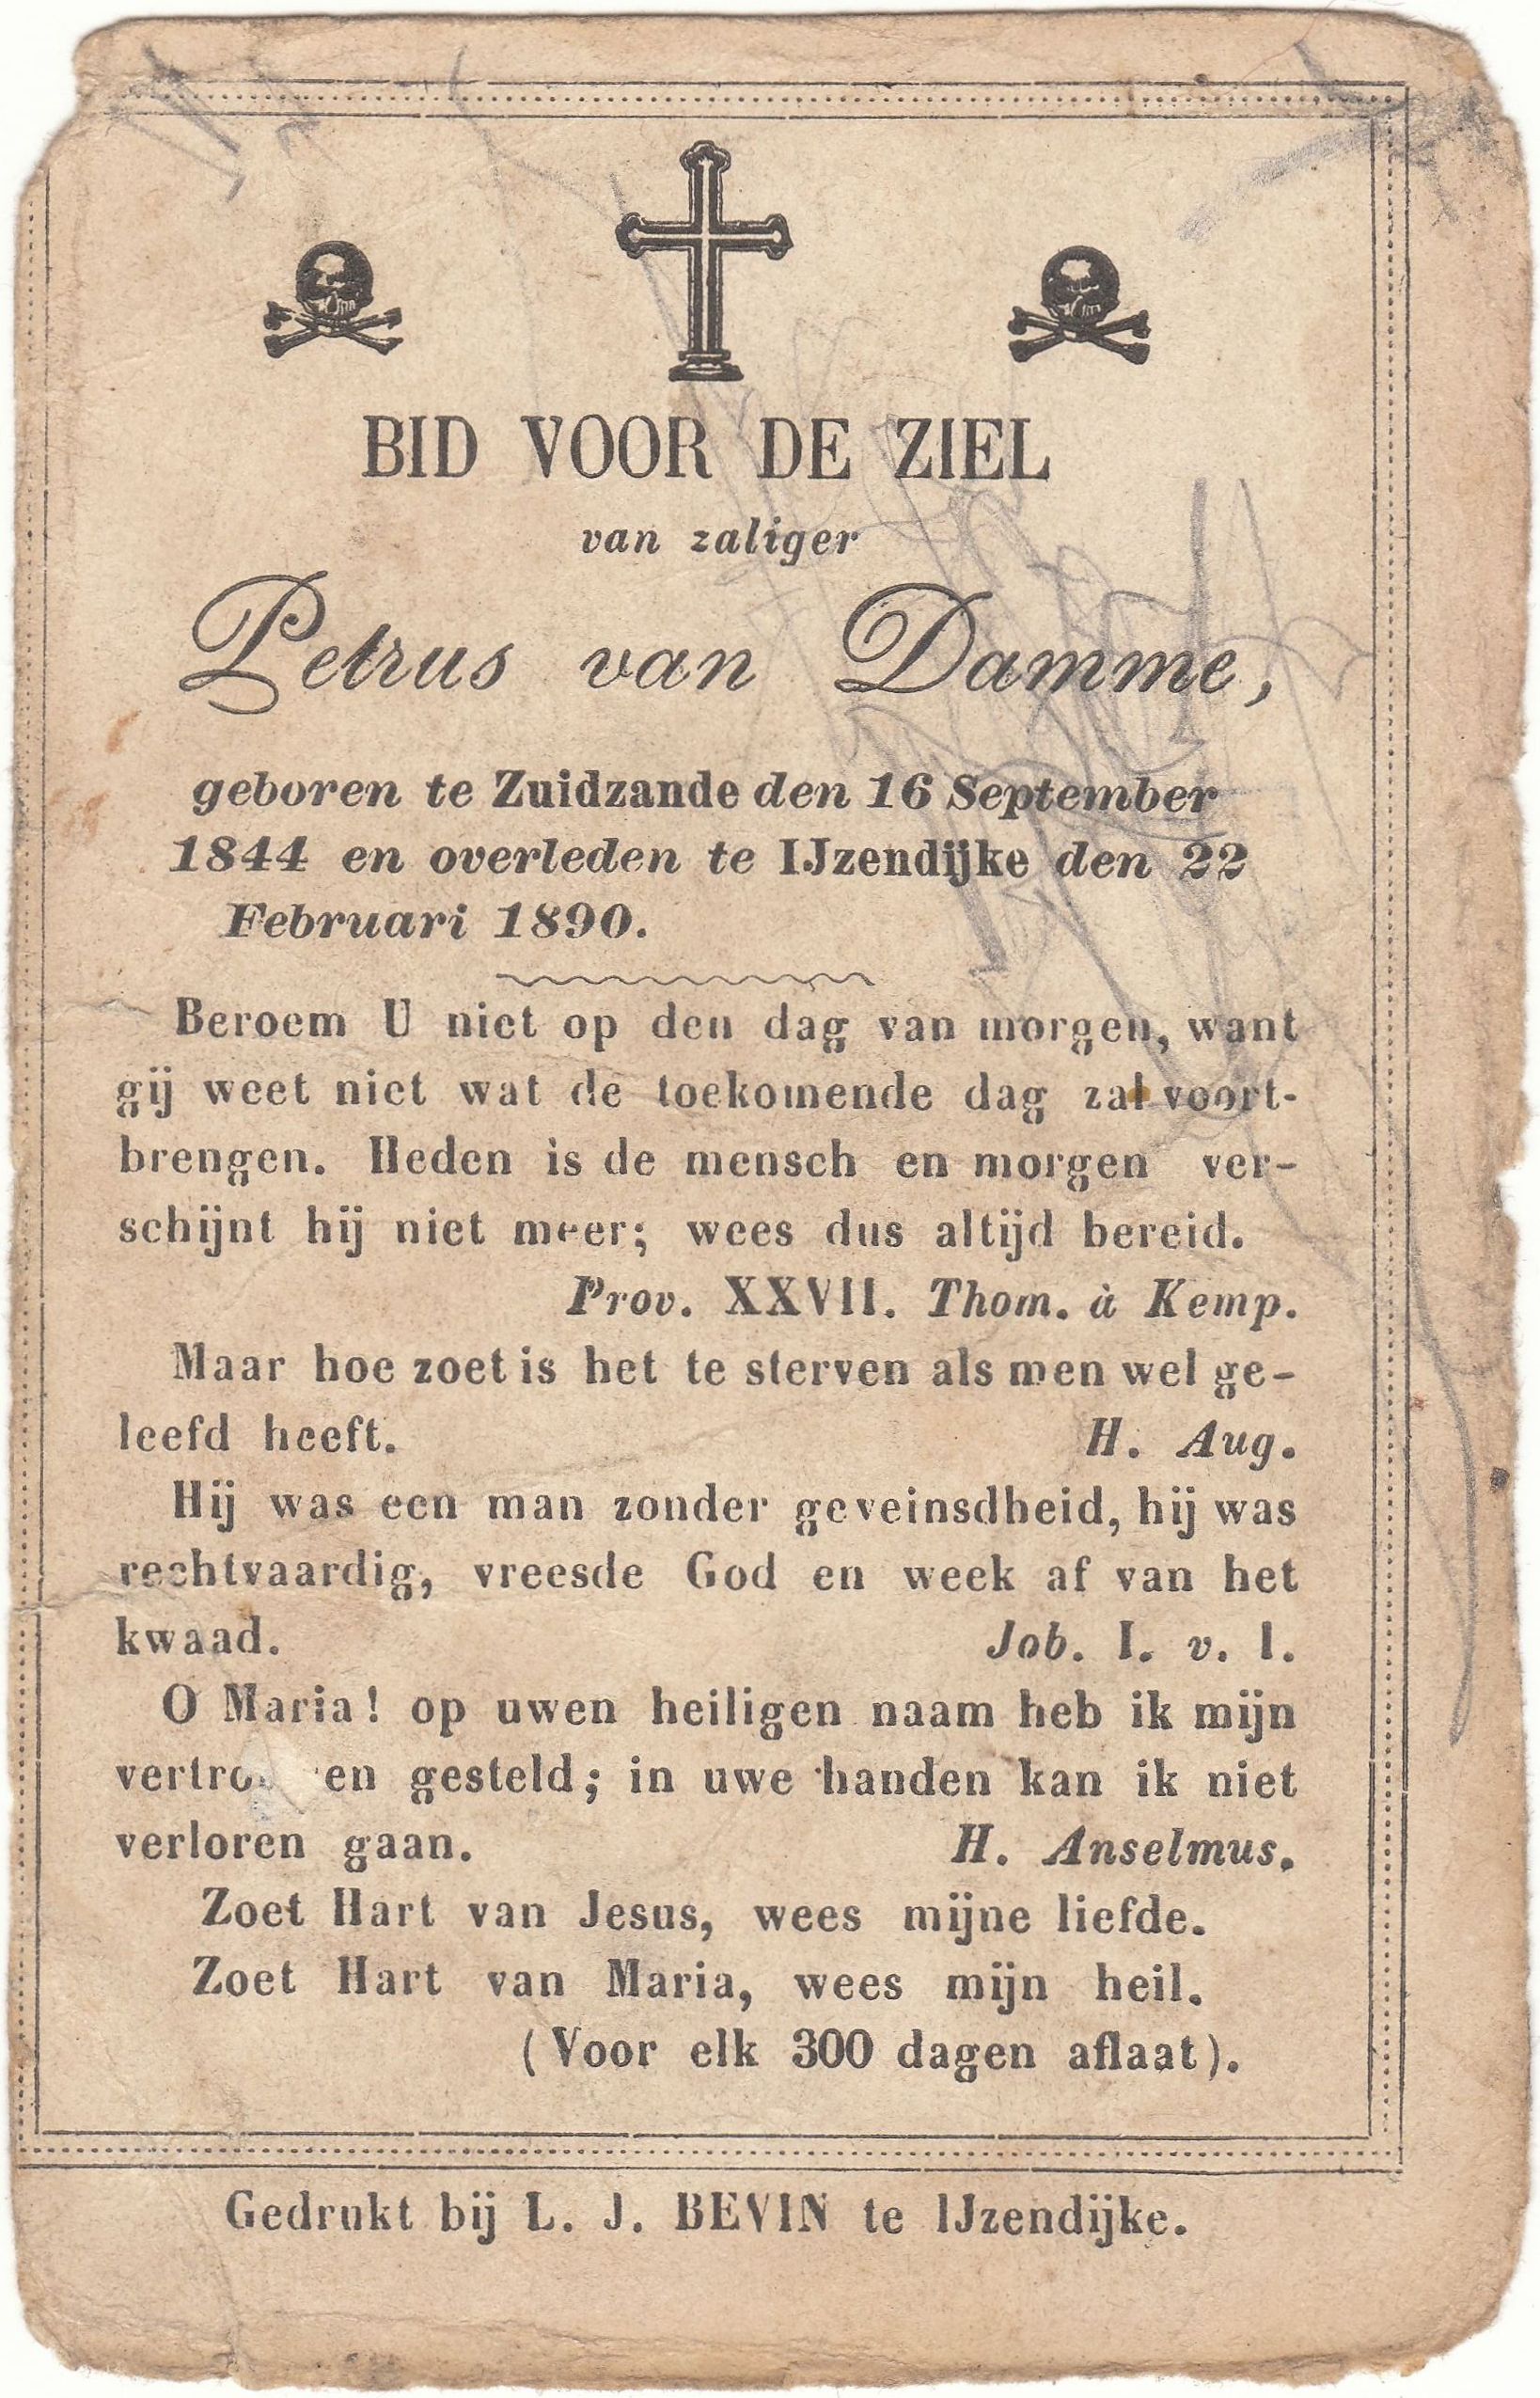 BID VOOR DE ZIEL
van zaliger
Petrus van Damme,
geboren te Zuidzande den 16 September
1844 en overleden te IJzendijke den 22
Februari 1890.
Beroem U niet op den dag van morgen, want
gij weet niet wat de toekomende dag zal voort-
brengen. Heden is de mensch en morgen ver-
schijnt hij niet meer; wees dus altijd bereid.
Prov. XXVII. Thom. à Kemp.
Maar hoe zoet is het te sterven als men wel ge-
leefd heeft. H. Aug.
Hij was een man zonder geveinsdheid, hij was
rechtvaardig, vreesde God en week af van het
kwaad. Job. I. v. 1.
O Maria! op uwen heiligen naam heb ik mijn
gesteld; in uwe handen kan ik niet
verloren gaan. H. Anselmus.
Zoet Hart van Jesus, wees mijne liefde.
Zoet Hart van Maria, wees mijn heil.
(Voor elk 300 dagen aflaat).
Gedrukt bij L. J. BEVIN te IJzendijke.